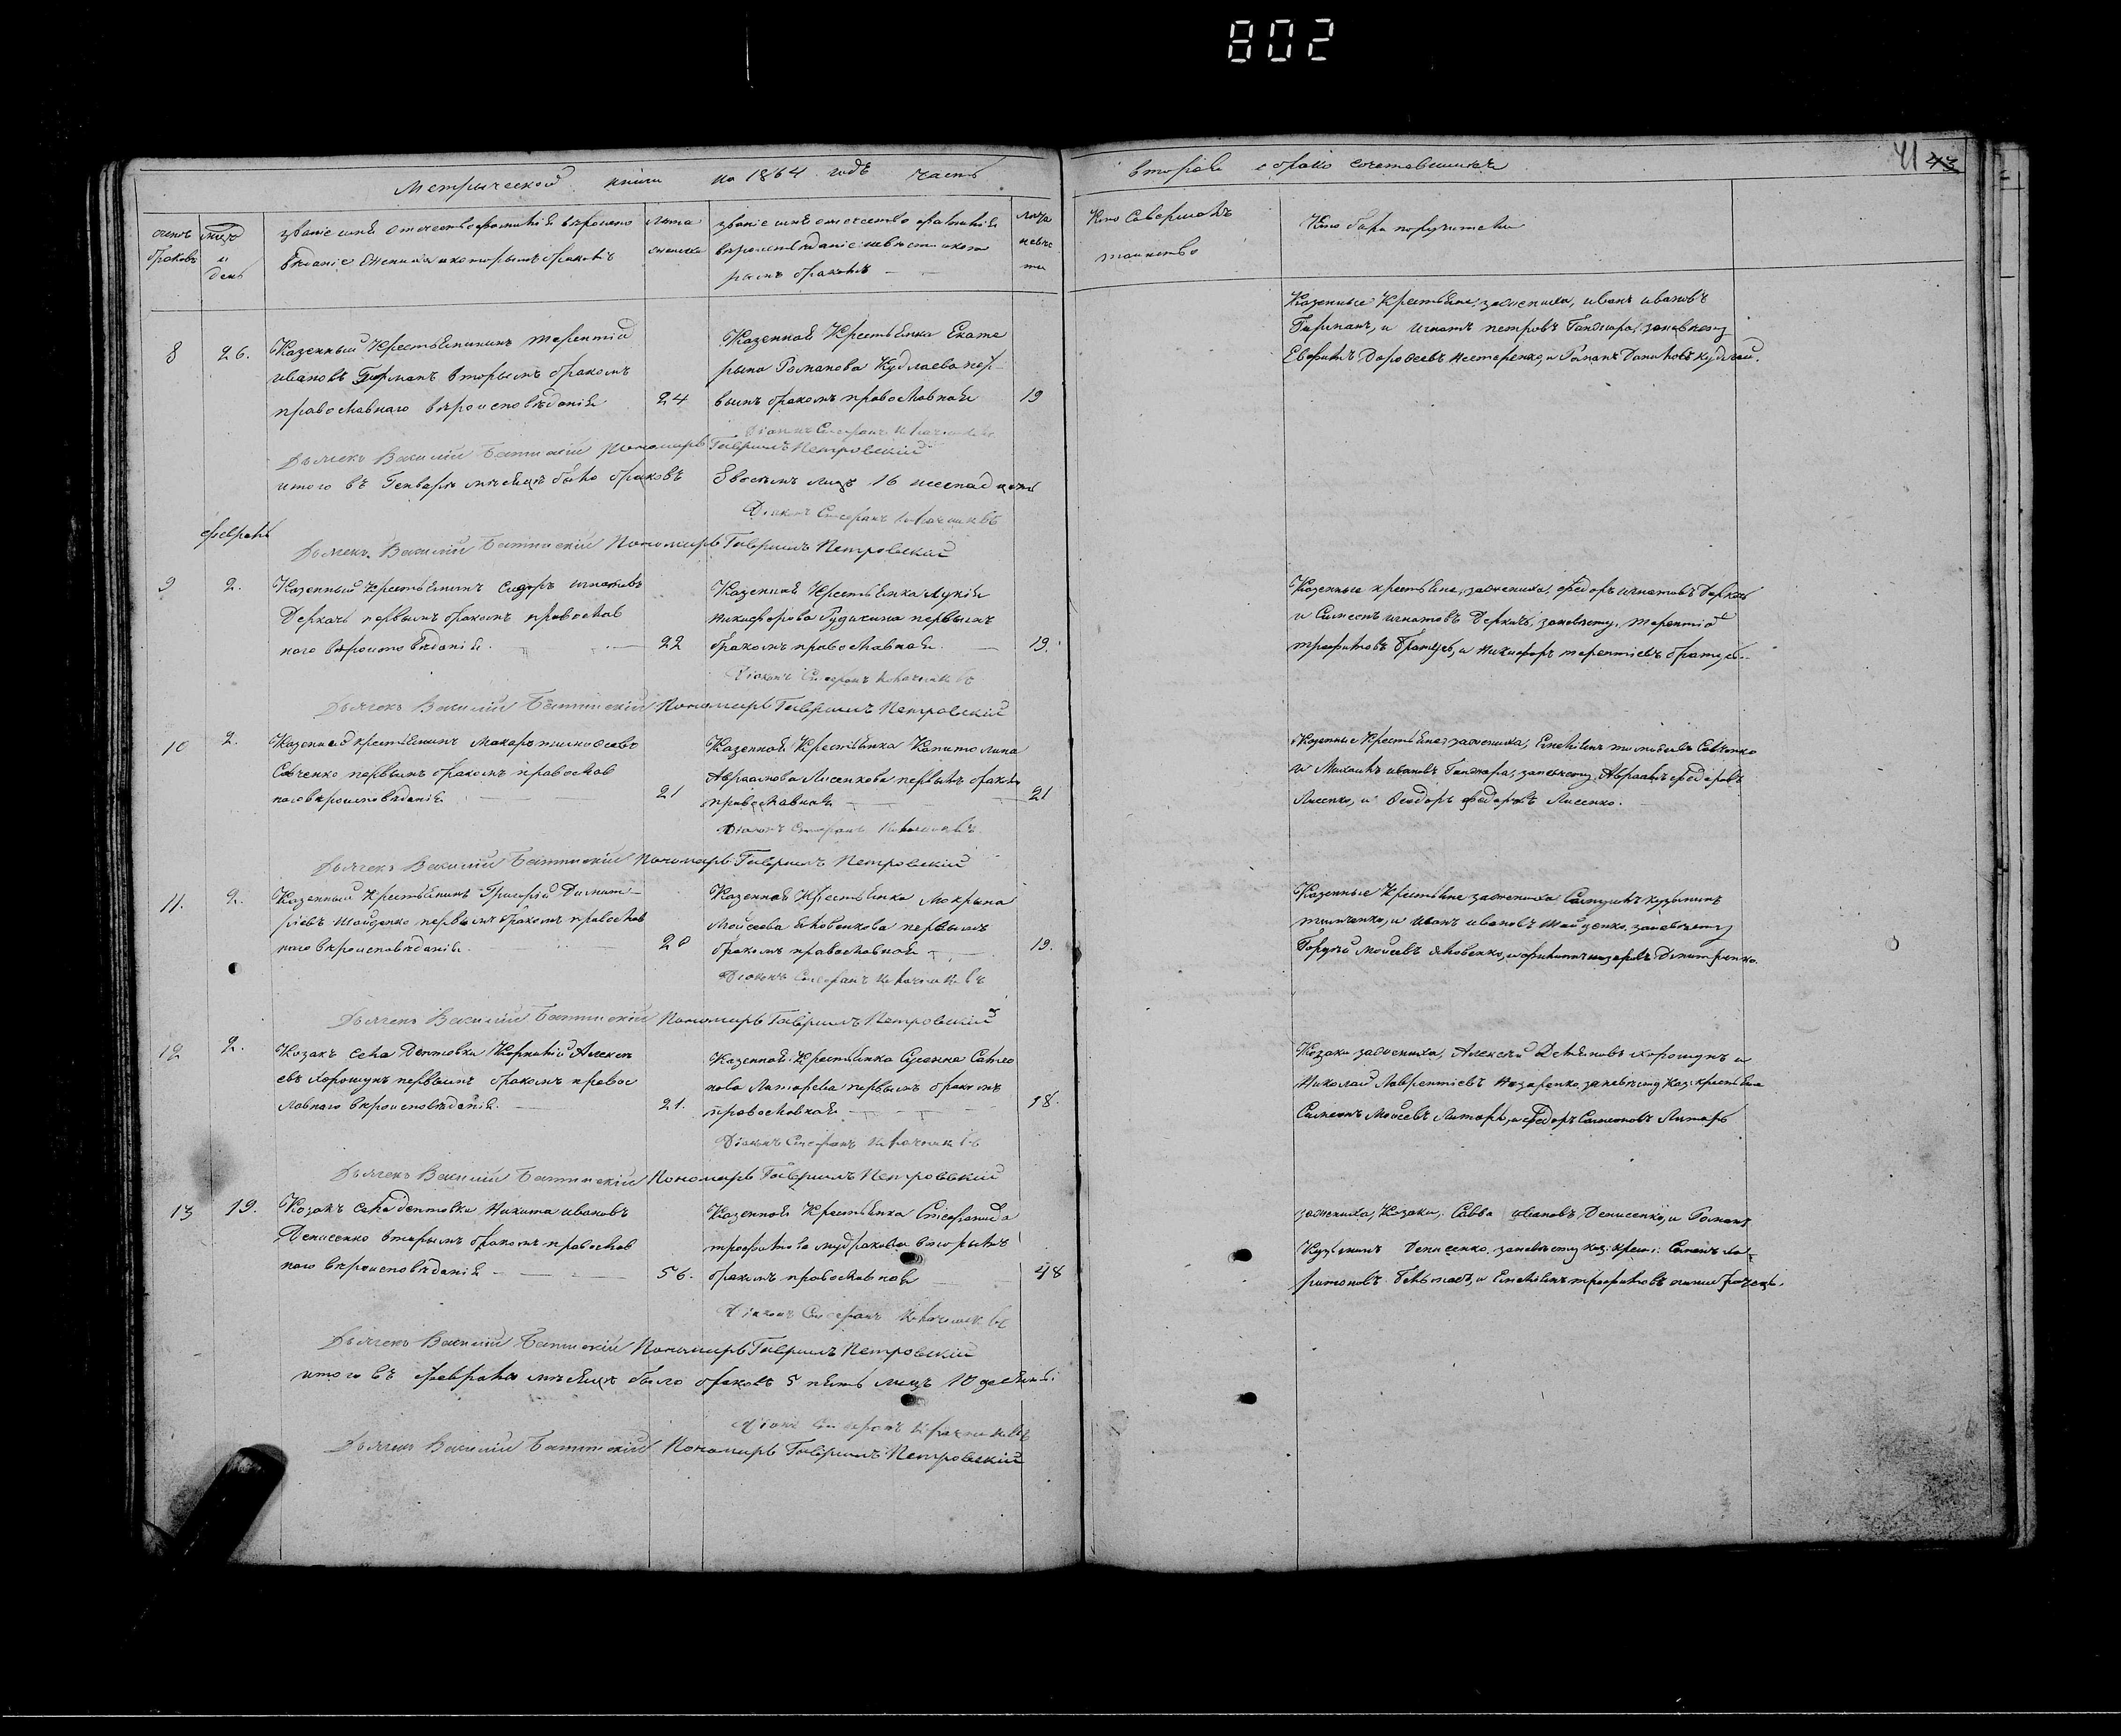 802
Метрической книги на 1864 годъ часть
вторая о бракосочетавшихся
41 43
счетъ браковъ
мѣсяцъ и день
званіе имя отечество фамилія вѣроиспо
вѣданіе жениха и которымъ бракомъ
лѣта жениха
званіе имя отечество фамилія
вѣроисповѣданіе невѣсты и кото
рымъ бракомъ
лѣта невѣсты
Кто Совершалъ
таинство
Кто были поручители
8 26. Казенный Крестьянинъ Терентій
Ивановъ Гирманъ вторымъ бракомъ
православнаго вѣроисповѣданія 24
Казенная Крестьянка Екате
рына Романова Кудлаева пер
вымъ бракомъ православная 19
Казенные Крестьяне, зажениха, иванъ ивановъ
Гирманъ, и игнатъ петровъ Ганжара, заневѣсту
Евфимъ Дорофеевъ нестеренко, и Романъ Даниловъ кудлай.
Діаконъ Стефанъ
Дьячекъ Василій Пономарь Гавріилъ Петровскій
итого въ Генварѣ мѣсяцѣ было браковъ 8 восемь лицъ 16 шеснадцать
Діаконъ Стефанъ
февраль
Дьячекъ Василій Пономарь Гавріилъ Петровскій
9 2. Казенный крестьянинъ Сидоръ игнатовъ
Деркачъ первымъ бракомъ православ
наго вѣроисповѣданія. 22
Казенная Крестьянка Лукія
Никифорова первымъ
бракомъ православная. 19.
Казенные крестьяне, зажениха, федоръ игнатовъ Деркачъ
и Симеонъ игнатовъ Деркачъ, заневѣсту, терентій
трофимовъ братусь, и никифоръ терентіевъ братусь.
Діаконъ Стефанъ
Дьячекъ Василій Пономарь Гавріилъ Петровскій
10 2. Казенный крестьянинъ Макаръ тимофеевъ
Савченко первымъ бракомъ православ
наго вѣроисповѣданія 21
Казенная Крестьянка Капитолина
Авраамова Лисенкова первымъ бракомъ
православная 21
Казенные Крестьяне зажениха, Емельянъ тимофеевъ Савченко
и Михаилъ ивановъ Ганжара, заневѣсту Авраамъ федоровъ
Лисенко, и Феодоръ федоровъ Лисенко.
Діаконъ Стефанъ
Дьячекъ Василій Пономарь Гавріилъ Петровскій
11. 2. Казенный Крестьянинъ Григорій Димит
ріевъ первымъ бракомъ православ
наго вѣроисповѣданія. 20
Казенная Крестьянка Мокрына
Мойсеева Яковенкова первымъ
бракомъ православная 19.
Казенные Крестьяне зажениха Самуилъ кузьминъ
тимченко, и иванъ ивановъ заневѣсту
Гордій Мойсеевъ яковенко, и филипъ назаровъ Дмитренко.
Діаконъ Стефанъ
Дьячекъ Василій Пономарь Гавріилъ Петровскій
12 2. Козакъ села Дептовки Корнилій Алексе
евъ Хорошунъ первымъ бракомъ право
славнаго вѣроисповѣданія. 21.
Казенная Крестьянка Сусанна Симео
нова Литарева первымъ бракомъ
православная 18.
Козаки зажениха, Алексѣй Демяновъ Хорошунъ и
Николай Лаврентіевъ Назаренко, заневѣсту каз. крестьяне
Симеонъ Мойсеевъ Литарь, и федоръ Симеоновъ Литарь
Діаконъ Стефанъ
Дьячекъ Василій Пономарь Гавріилъ Петровскій
13 19. Козакъ села дептовки Никита ивановъ
Денисенко вторымъ бракомъ православ
наго вѣроисповѣданія 56.
Казенная Крестьянка Стефанида
трофимова мудракова вторымъ
бракомъ православная 48
зажениха, Козаки, Савва ивановъ Денисенко, и Романъ
Кузьминъ Денисенко, заневѣсту каз: крест: Симонъ ха
ритоновъ и Емельянъ трофимовъ
Діаконъ Стефанъ
Дьячекъ Василій Пономарь Гавріилъ Петровскій
итого въ февралѣ мѣсяцѣ было браковъ 5 пять лицъ 10 десять.
Діаконъ Стефанъ
Дьячекъ Василій Пономарь Гавріилъ Петровскій